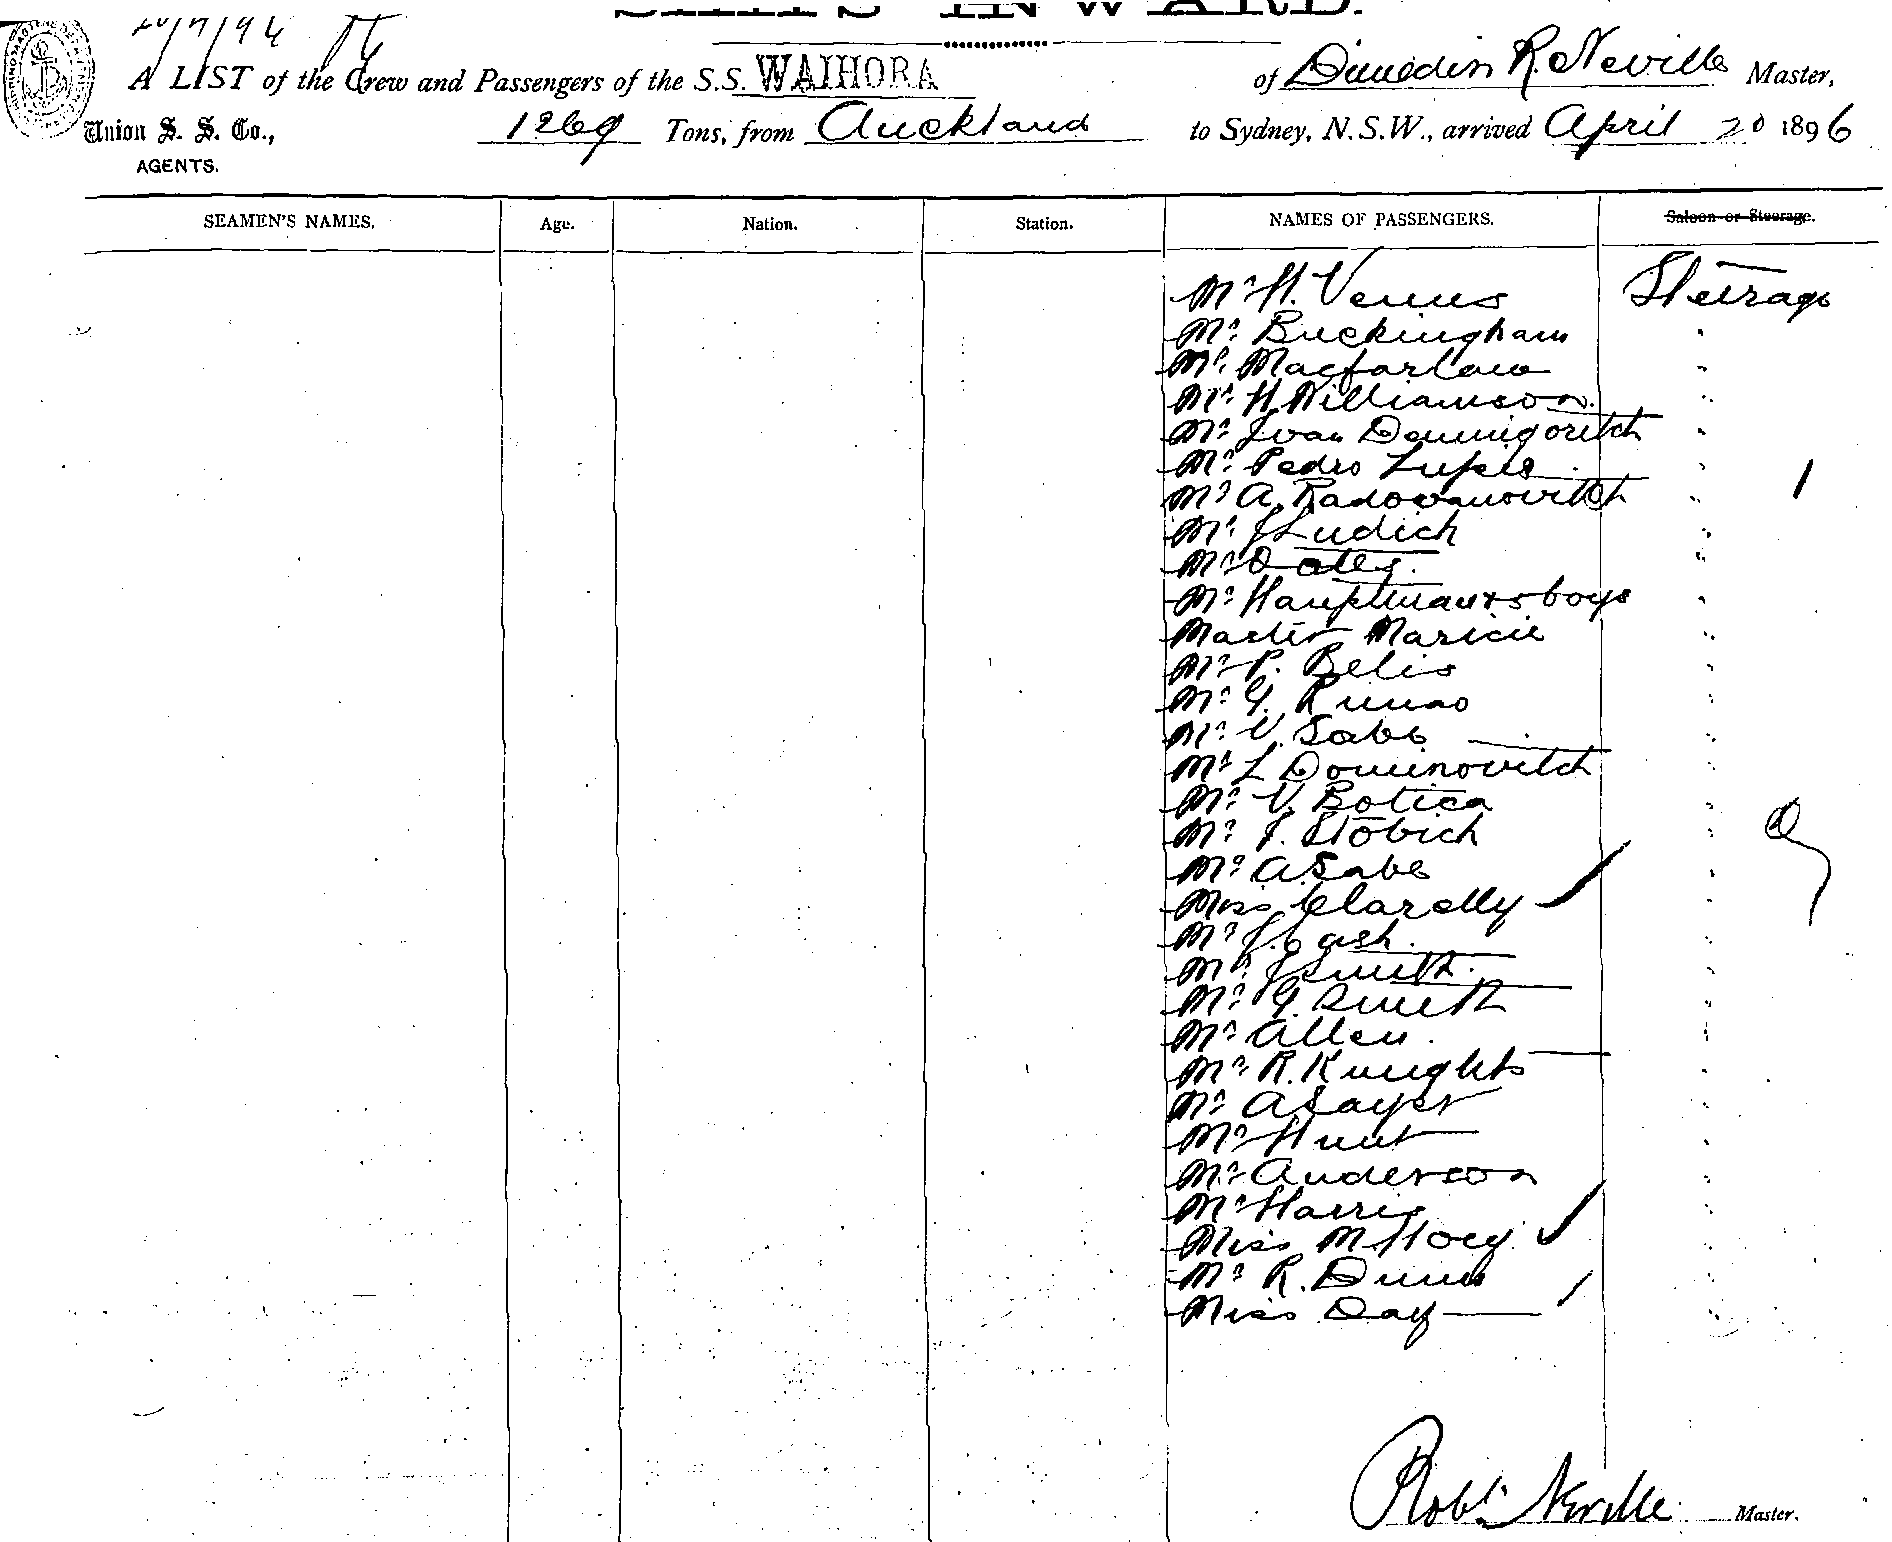 SHIPS INWARD.
20/4/96
A LIST of the Crew and Passengers of the S.S. WAIHORA of Dunedin R. Neville Master,
Union S. S. Co., 1269 Tons, from Auckland to Sydney, N.S.W., arrived April 20 1896
AGENTS.
SEAMEN'S NAMES. Age. Nation. Station. NAMES OF PASSENGERS. Saloon or Steerage.
Mr H. Venus Steerage
Mr Buckingham "
Mr Macfarlane "
Mr H Williamson "
Mr Ivan Demmigoritch "
Mr Pedro Lupis " 1
Mr A. Radovanovitch "
Mr J Ludich "
Mr "
Mr "
Master "
Mr P. Belis "
Mr G. Runao "
Mr V. Sabe "
Mr L Dominovitch "
Mr V. Botica "
Mr J. Stobich "
Mr A Sabe "
Miss Clarelly "
Mr J. Cash "
Mr J Smith "
Mr G. Smith "
Mr Allen "
Mr R. Knights "
Mr A Sayer "
Mr Hunt "
Mr Anderson "
Mr Harris "
Miss M Hoey "
Mr R. Dunn "
Miss Day "
Robt Neville Master.